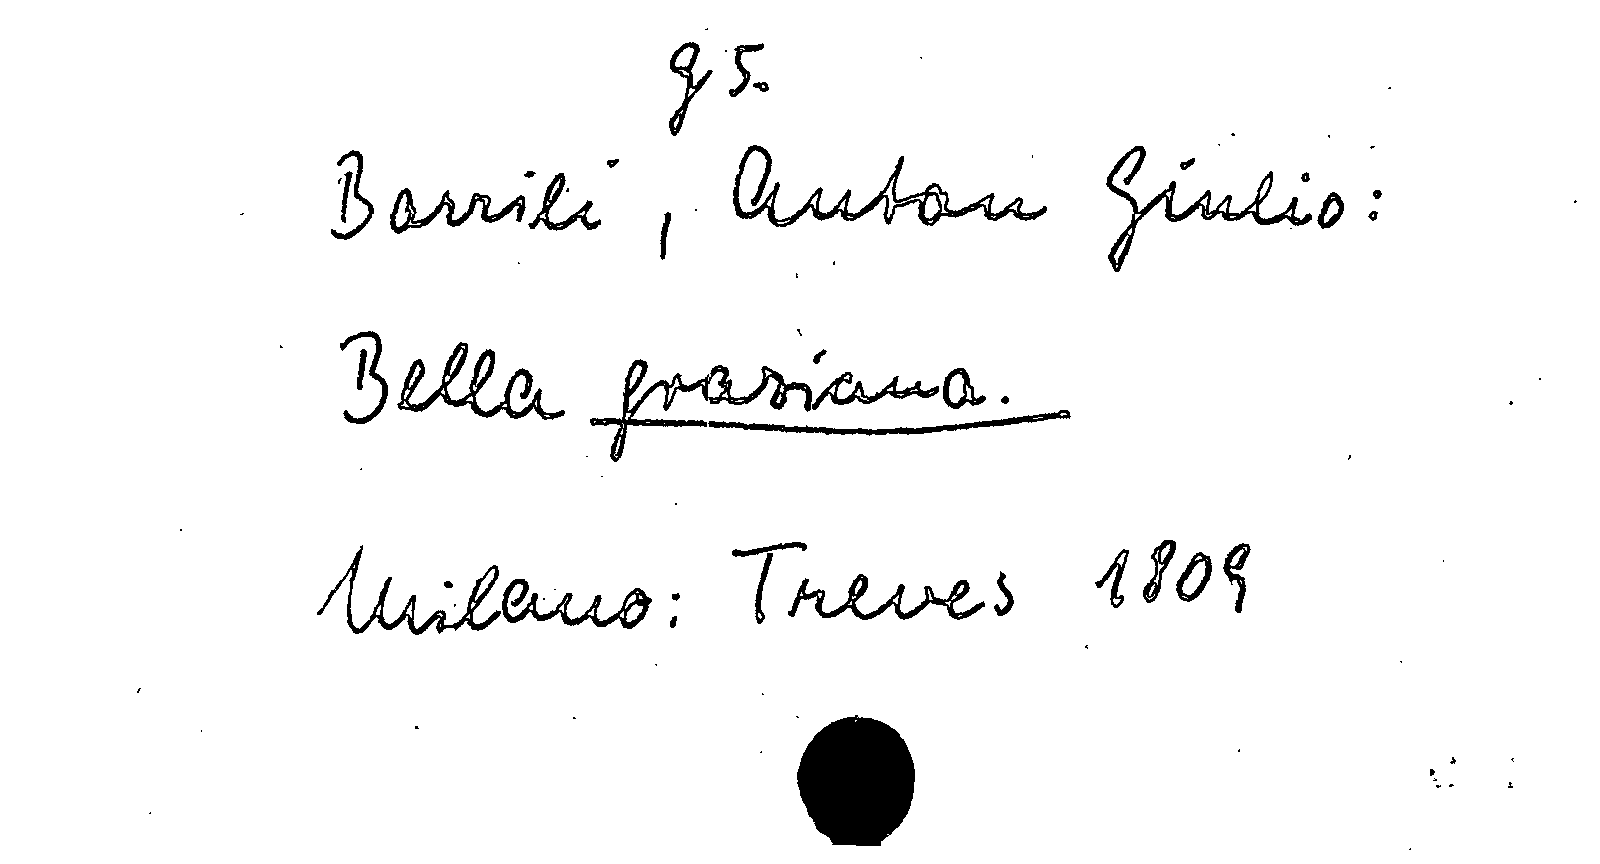 g 5.
Barrili, Anton Giulio:
Bella graziana.
Milano: Treves 1809